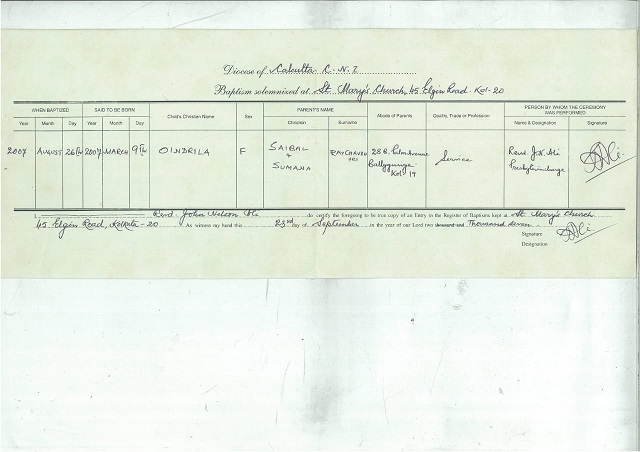 Diocese of Calcutta C. N. I.
Baptism solemnized at St. Mary's Church, 45 Elgin Road. Kol-20
WHEN BAPTIZED SAID TO BE BORN Child's Christian Name Sex PARENT'S NAME Abode of Parents Quality, Trade or Profession PERSON BY WHOM THE CEREMONY WAS PERFORMED
Year Month Day Year Month Day Christian Surname Name & Designation Signature
2007 AUGUST 26th 2007 MARCH 9th OINDRILA F SAIBAL & SUMANA RAYCHAUDHURI 28 B. Palm Avenue Ballygunge Kol-19 Service Revd. J.N. Ali Presbyter-in-charge
I Revd. John Nelson Ali do certify the foregoing to be true copy of an Entry in the Register of Baptisms kept at St. Mary's Church
45 Elgin Road, Kolkata-20 As witness my hand this 23rd day of September in the year of our Lord two thousand and Thousand seven
Signature
Designation